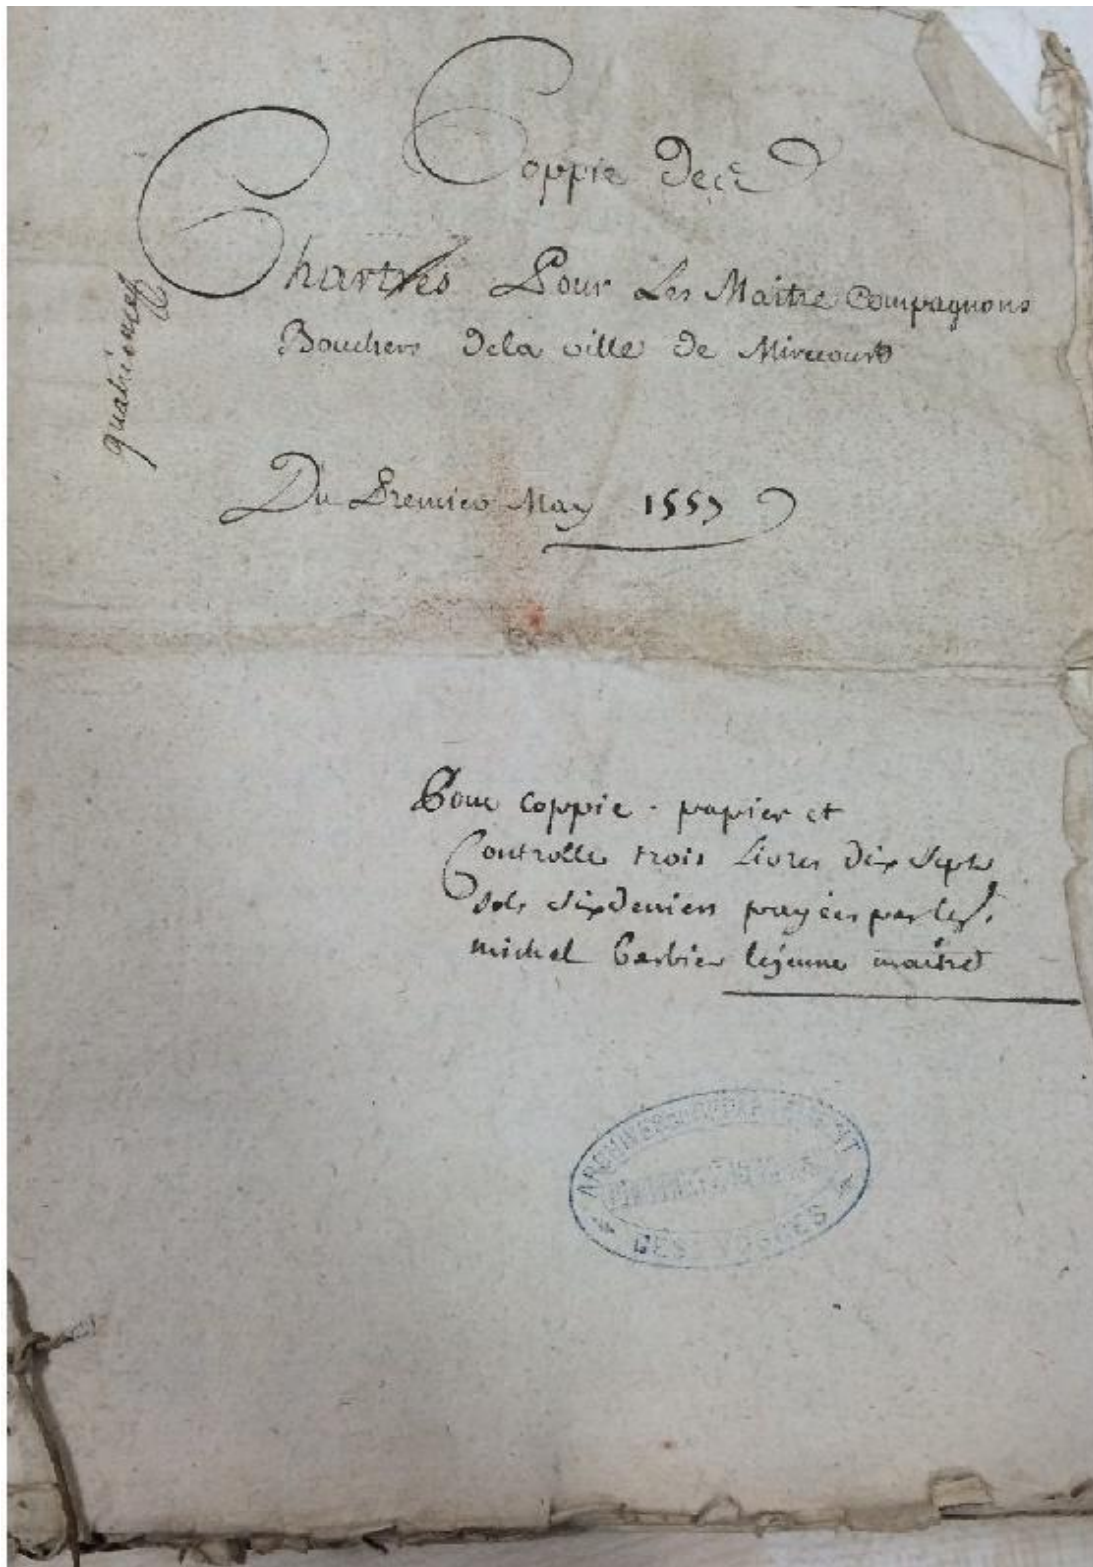 Coppie des
Chartres Pour Les Maitre Compagnons
Bouchers dela ville de Mirecourt
quatrieme
Du Premier May 1557
Pour coppie - papier et
Controlle trois Livres dix sept
sols six deniers payées par le s.
michel barbier lejeune maitre
ARCHIVES DU DEPARTEMENT
DES VOSGES